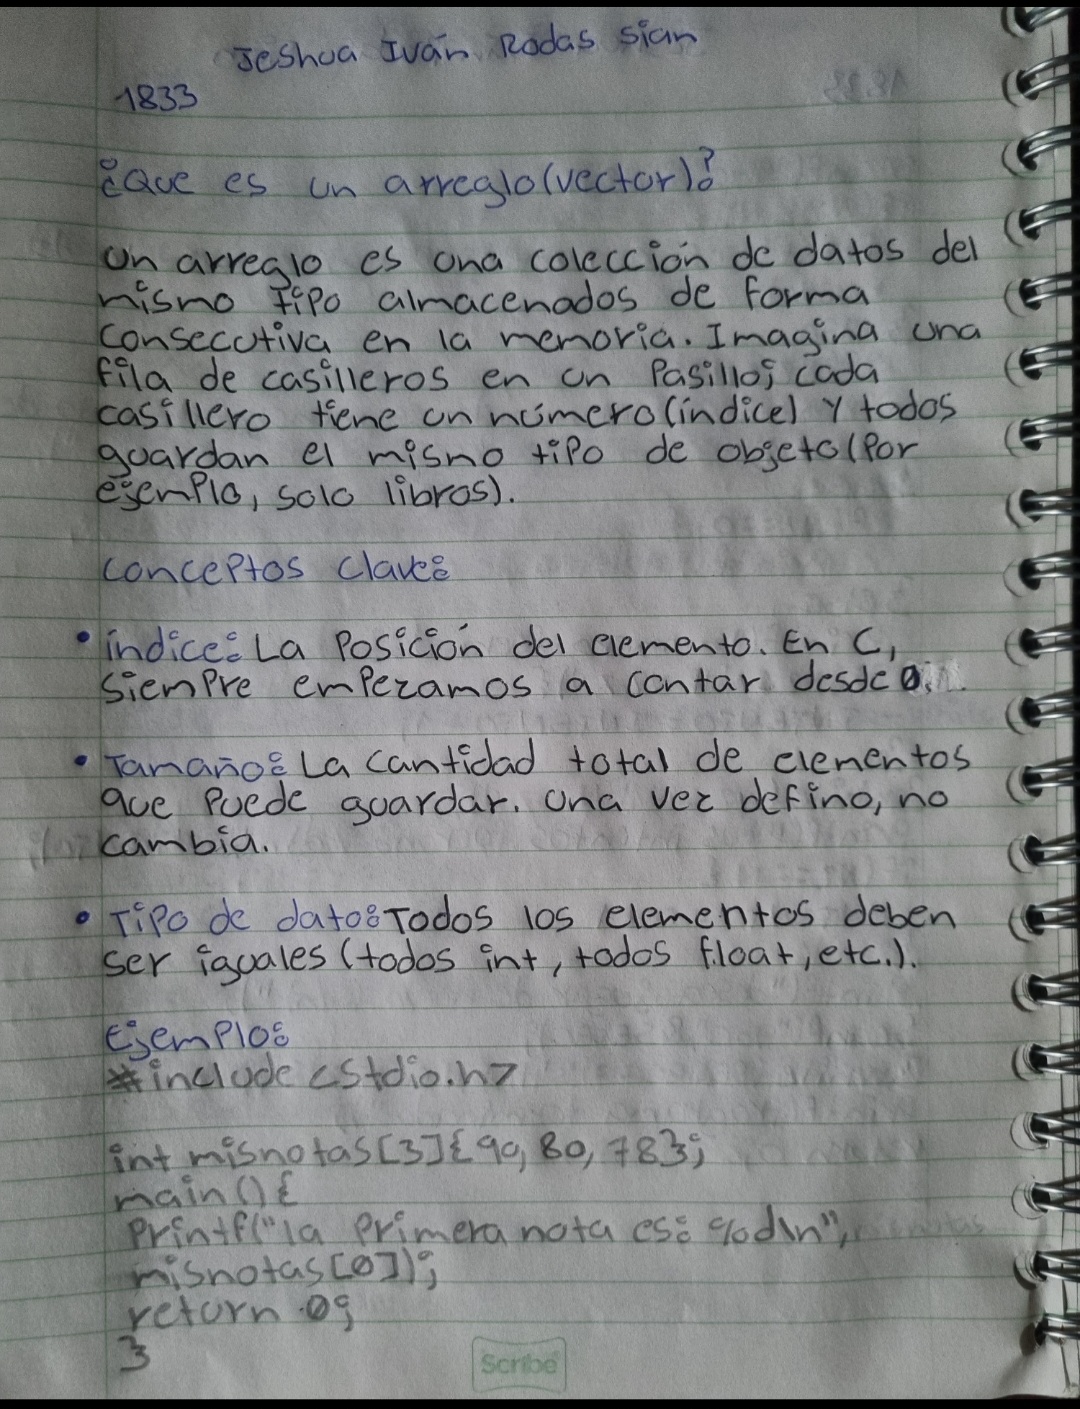 Jeshua Iván Rodas Sian
1833
¿Que es un arreglo(vector)?
Un arreglo es una colección de datos del
mismo tipo almacenados de forma
consecutiva en la memoria. Imagina una
fila de casilleros en un Pasillo; cada
casillero tiene un número(índice) y todos
guardan el mismo tipo de objeto(Por
ejemplo, solo libros).
Conceptos Clave:
• índice: La Posición del elemento. En C,
siempre empezamos a contar desde 0.
• Tamaño: La cantidad total de elementos
que puede guardar. Una vez defino, no
cambia.
• Tipo de dato: Todos los elementos deben
ser iguales (todos int, todos float, etc.).
Ejemplo:
#include <stdio.h>
int misnotas[3]{90, 80, 78};
main(){
Printf("la Primera nota es: %d\n",
misnotas[0]);
return 0;
}
Scribe